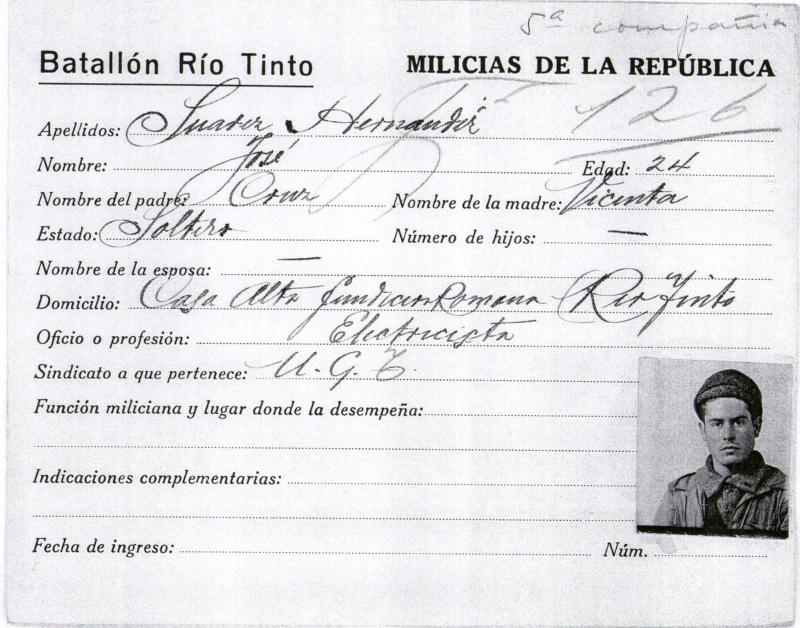 5ª compañia
Batallón Río Tinto MILICIAS DE LA REPÚBLICA
126
Apellidos: Suarez Hernandez
Nombre: José Edad: 24
Nombre del padre: Cruz Nombre de la madre: Vicenta
Estado: Soltero Número de hijos: —
Nombre de la esposa: —
Domicilio: Casa Alta fundicion Romana (Rio Tinto
Oficio o profesión: Electricista
Sindicato a que pertenece: U.G.T.
Función miliciana y lugar donde la desempeña:
Indicaciones complementarias:
Fecha de ingreso: Núm.